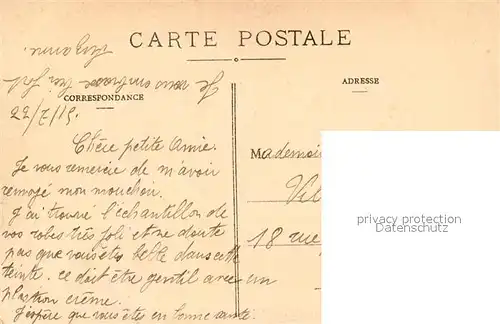 CARTE POSTALE
ADRESSE
CORRESPONDANCE
22/7/15.
Chère petite Amie.
Je vous remercie de m'avoir
remojé mon mouchoir.
J'ai trouvé l'échantillon de
vos robes très joli et ne doute
pas que vous êtes belle dans cette
teinte. ce doit être gentil avec un
plastron crème.
J'espère que vous êtes en bonne santé.
Mademois
18 rue
privacy protection
Datenschutz